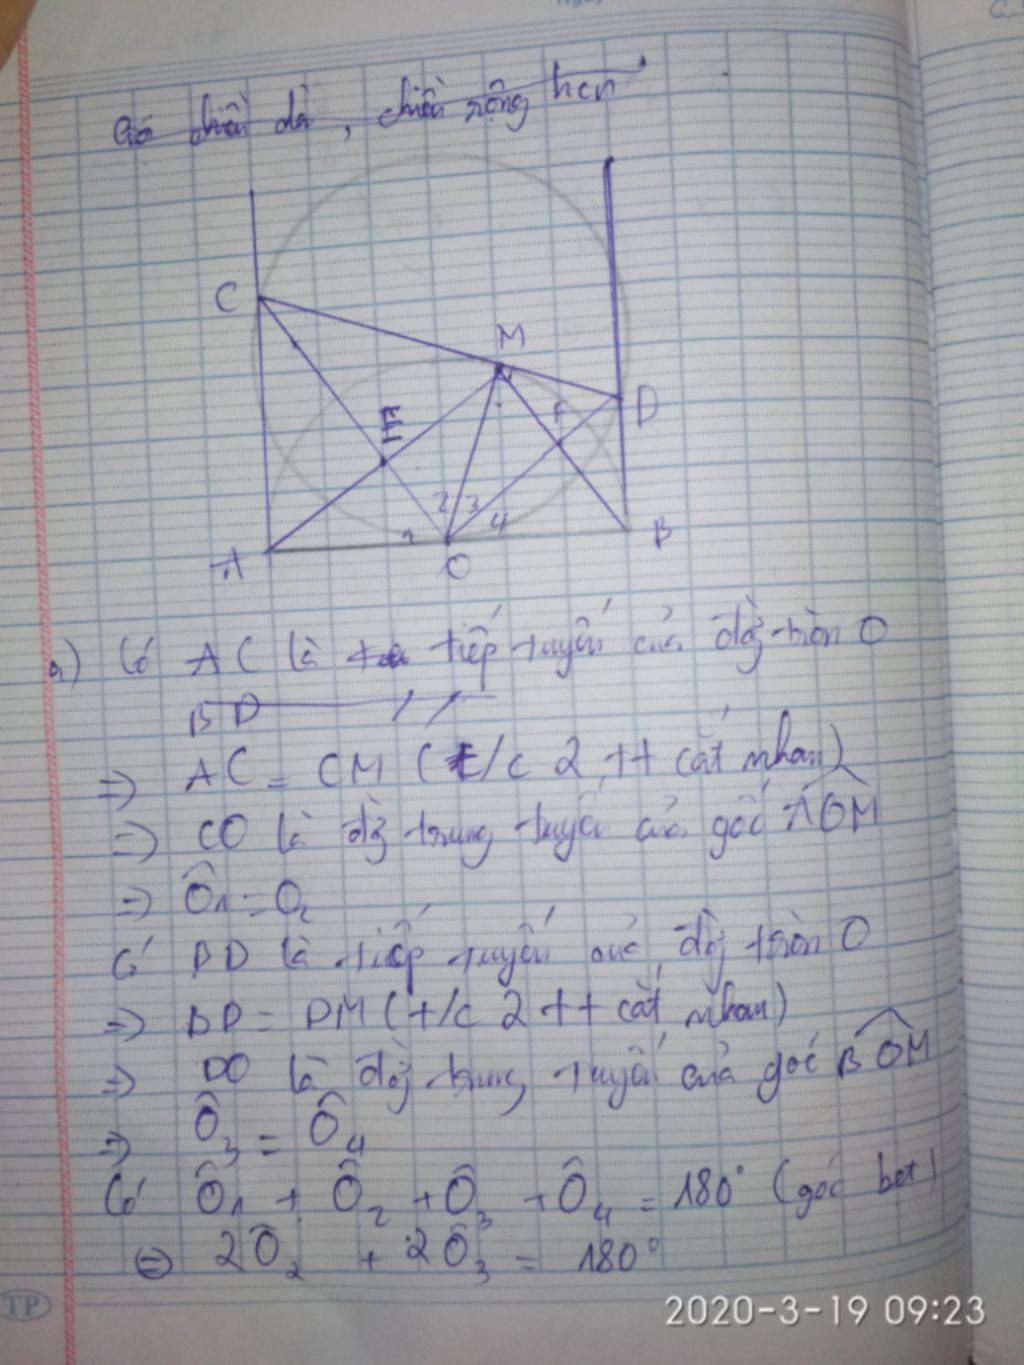 Có chiều dài, chiều rộng hcn
C
M
E
F
D
2 3
1 4
A
O
B
a) Có AC là tiếp tuyến của đg tròn O
BD //
=> AC = CM (t/c 2 tt cắt nhau)
=> CO là đg trung tuyến của góc AÔM
=> Ô1 = O2
Có BD là tiếp tuyến của đg tròn O
=> BD = DM (t/c 2 tt cắt nhau)
=> DO là đg trung tuyến của góc BÔM
=> Ô3 = Ô4
Có Ô1 + Ô2 + Ô3 + Ô4 = 180° (góc bẹt)
<=> 2Ô2 + 2Ô3 = 180°
TP
2020-3-19 09:23